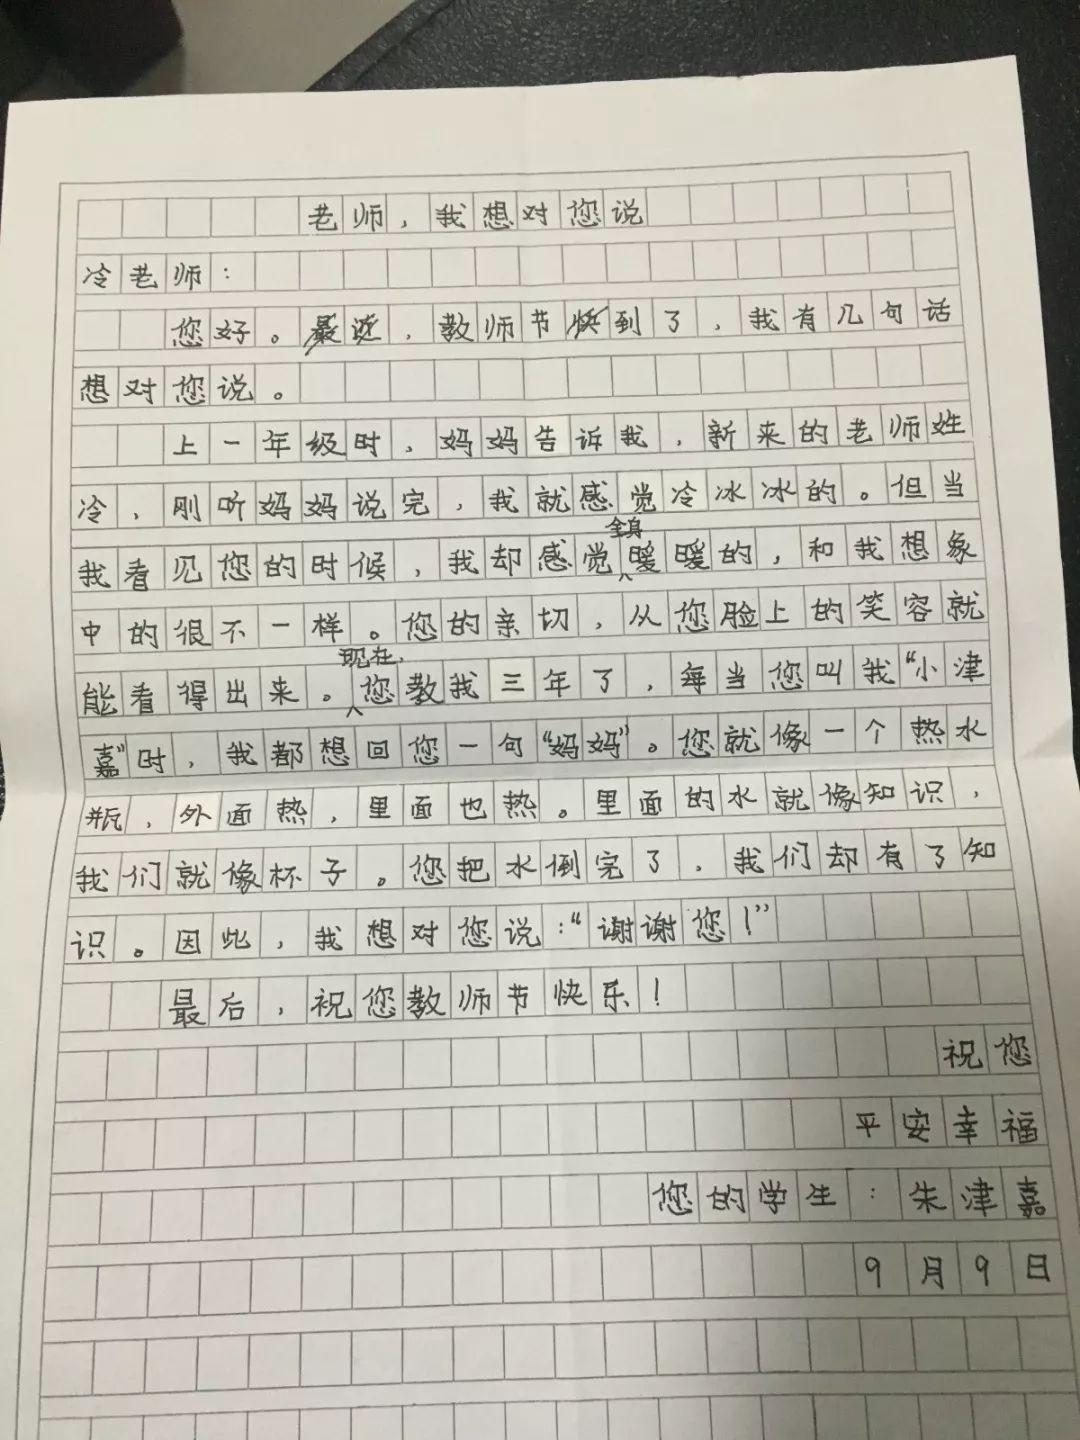 老师，我想对您说
冷老师：
您好。最近，教师节快到了，我有几句话
想对您说。
上一年级时，妈妈告诉我，新来的老师姓
冷，刚听妈妈说完，我就感觉冷冰冰的。但当
全身
我看见您的时候，我却感觉暖暖的，和我想象
中的很不一样。您的亲切，从您脸上的笑容就
现在，
能看得出来。您教我三年了，每当您叫我“小津
嘉”时，我都想回您一句“妈妈”。您就像一个热水
瓶，外面热，里面也热。里面的水就像知识，
我们就像杯子。您把水倒完了，我们却有了知
识。因此，我想对您说：“谢谢您！”
最后，祝您教师节快乐！
祝您
平安幸福
您的学生：朱津嘉
9月9日